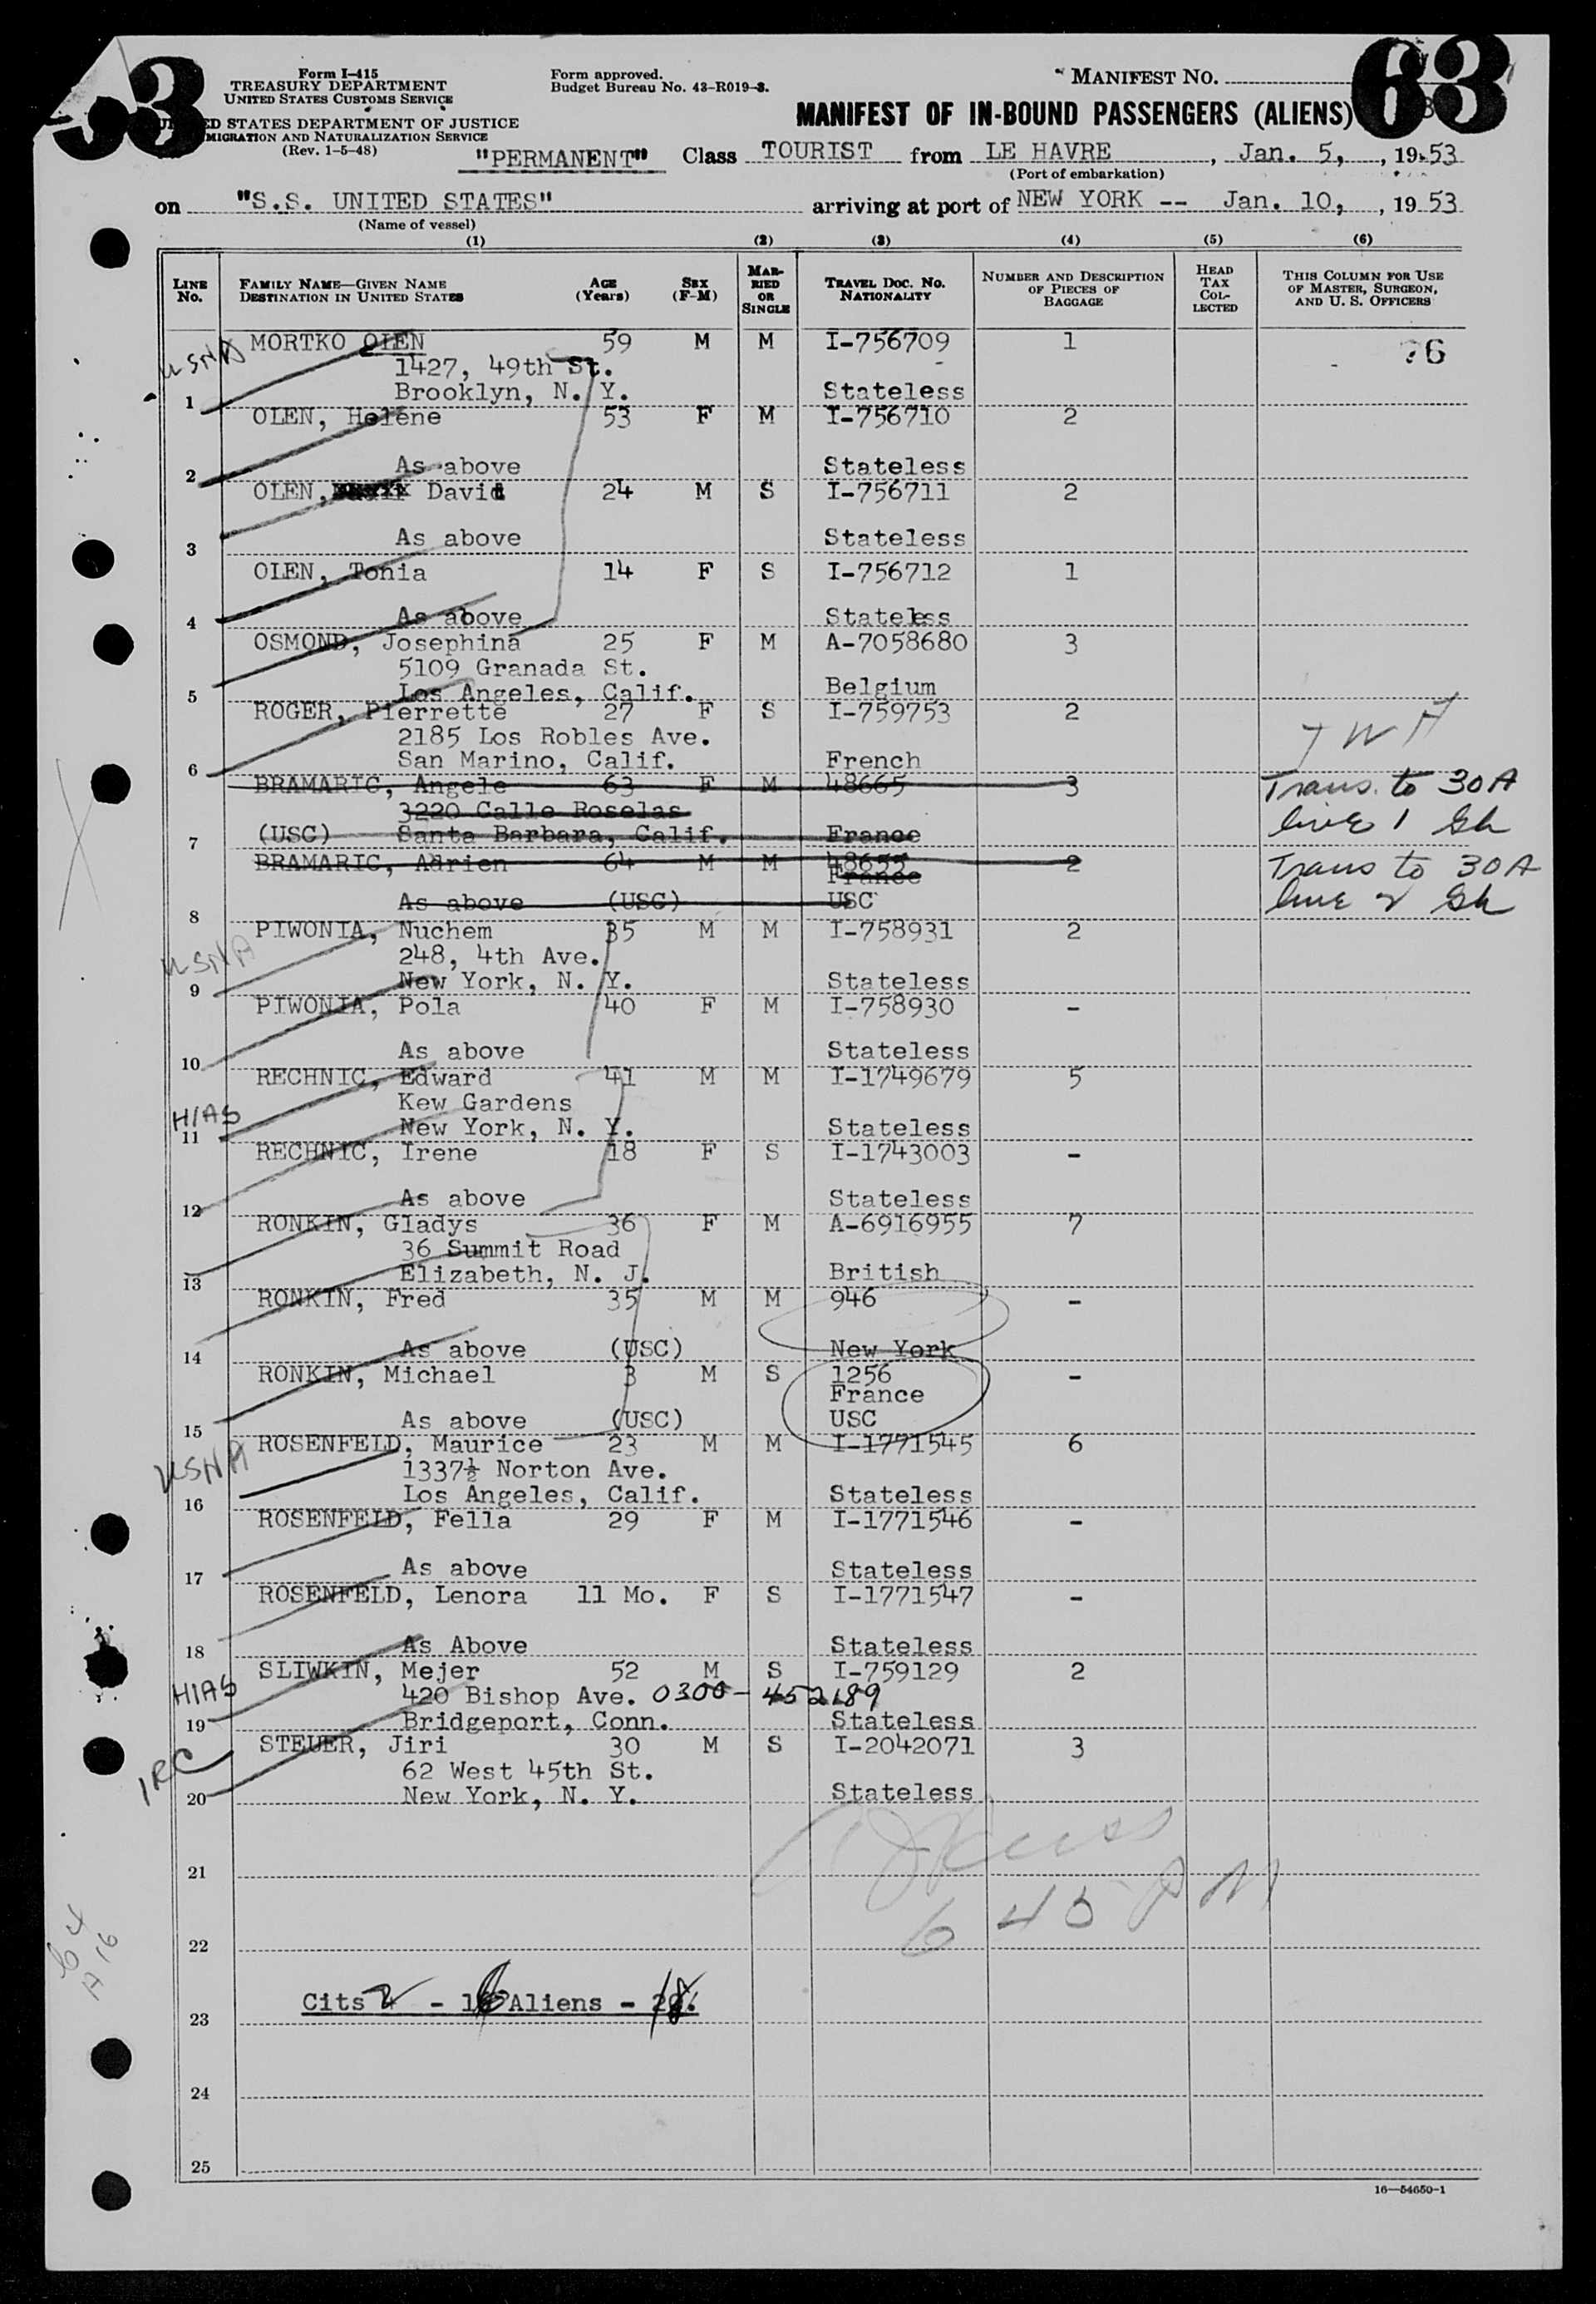 63
Form I-415
TREASURY DEPARTMENT
UNITED STATES CUSTOMS SERVICE
ED STATES DEPARTMENT OF JUSTICE
MIGRATION AND NATURALIZATION SERVICE
(Rev. 1-5-48)
Form approved.
Budget Bureau No. 43-R019-3.
MANIFEST NO.
63
MANIFEST OF IN-BOUND PASSENGERS (ALIENS)
"PERMANENT" Class TOURIST from LE HAVRE, Jan. 5, , 19 53
(Port of embarkation)
on "S.S. UNITED STATES" arriving at port of NEW YORK -- Jan. 10, , 19 53
(Name of vessel)
(1) (2) (3) (4) (5) (6)
LINE No. FAMILY NAME—GIVEN NAME DESTINATION IN UNITED STATES AGE (Years) SEX (F-M) MARRIED OR SINGLE TRAVEL DOC. NO. NATIONALITY NUMBER AND DESCRIPTION OF PIECES OF BAGGAGE HEAD TAX COLLECTED THIS COLUMN FOR USE OF MASTER, SURGEON, AND U. S. OFFICERS
USNA MORTKO OLEN 59 M M I-756709 1 76
1427, 49th St.
1 Brooklyn, N. Y. Stateless
OLEN, Helene 53 F M I-756710 2
2 As above Stateless
OLEN, David 24 M S I-756711 2
3 As above Stateless
OLEN, Tonia 14 F S I-756712 1
4 As above Stateless
OSMOND, Josephina 25 F M A-7058680 3
5109 Granada St.
5 Los Angeles, Calif. Belgium
ROGER, Pierrette 27 F S I-759753 2
2185 Los Robles Ave. TWA
6 San Marino, Calif. French
BRAMARIC, Angele 63 F M 48665 3 Trans. to 30A
3220 Calle Roselas line 1 Gh
7 (USC) Santa Barbara, Calif. France
BRAMARIC, Adrien 64 M M 48655 2 Trans to 30A
France
8 As above (USC) USC line 2 Gh
PIWONIA, Nuchem 35 M M I-758931 2
USNA 248, 4th Ave.
9 New York, N. Y. Stateless
PIWONIA, Pola 40 F M I-758930 -
10 As above Stateless
RECHNIC, Edward 41 M M I-1749679 5
HIAS Kew Gardens
11 New York, N. Y. Stateless
RECHNIC, Irene 18 F S I-1743003 -
12 As above Stateless
RONKIN, Gladys 36 F M A-6916955 7
36 Summit Road
13 Elizabeth, N. J. British
RONKIN, Fred 35 M M 946 -
14 As above (USC) New York
RONKIN, Michael 3 M S 1256 -
France
15 As above (USC) USC
USNA ROSENFELD, Maurice 23 M M I-1771545 6
1337½ Norton Ave.
16 Los Angeles, Calif. Stateless
ROSENFELD, Fella 29 F M I-1771546 -
17 As above Stateless
ROSENFELD, Lenora 11 Mo. F S I-1771547 -
18 As Above Stateless
SLIWKIN, Mejer 52 M S I-759129 2
HIAS 420 Bishop Ave. 0300-452189
19 Bridgeport, Conn. Stateless
STEUER, Jiri 30 M S I-2042071 3
IRC 62 West 45th St.
20 New York, N. Y. Stateless
21
6 45 PM
22
C 4
A 16
23 Cits 2 - 16 Aliens - 18.
24
25
16—54650-1